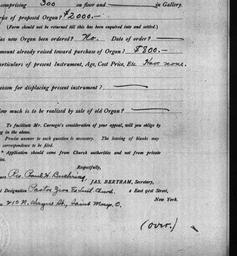 comprising 300 on floor and — in Gallery.
of proposed Organ? $2000.—
(Form should not be returned till this has been enquired into and settled.)
as new Organ been ordered? No. Date of order? —
mount already raised toward purchase of Organ? $800.—
articulars of present Instrument, Age, Cost Price, Etc. Have none.
eason for displacing present instrument? —
ow much is to be realized by sale of old Organ? —
To facilitate Mr. Carnegie's consideration of your appeal, will you oblige by
ing in the above.
Precise answer to each question is necessary. The leaving of blanks may
correspondence to be filed.
Application should come from Church authorities and not from private
Respectfully,
Rev. Paul H.
JAS. BERTRAM, Secretary,
Designation Pastor Zion Church. 2 East 91st Street,
New York.
N. Wayne St., Saint Marys, O.
(over.)